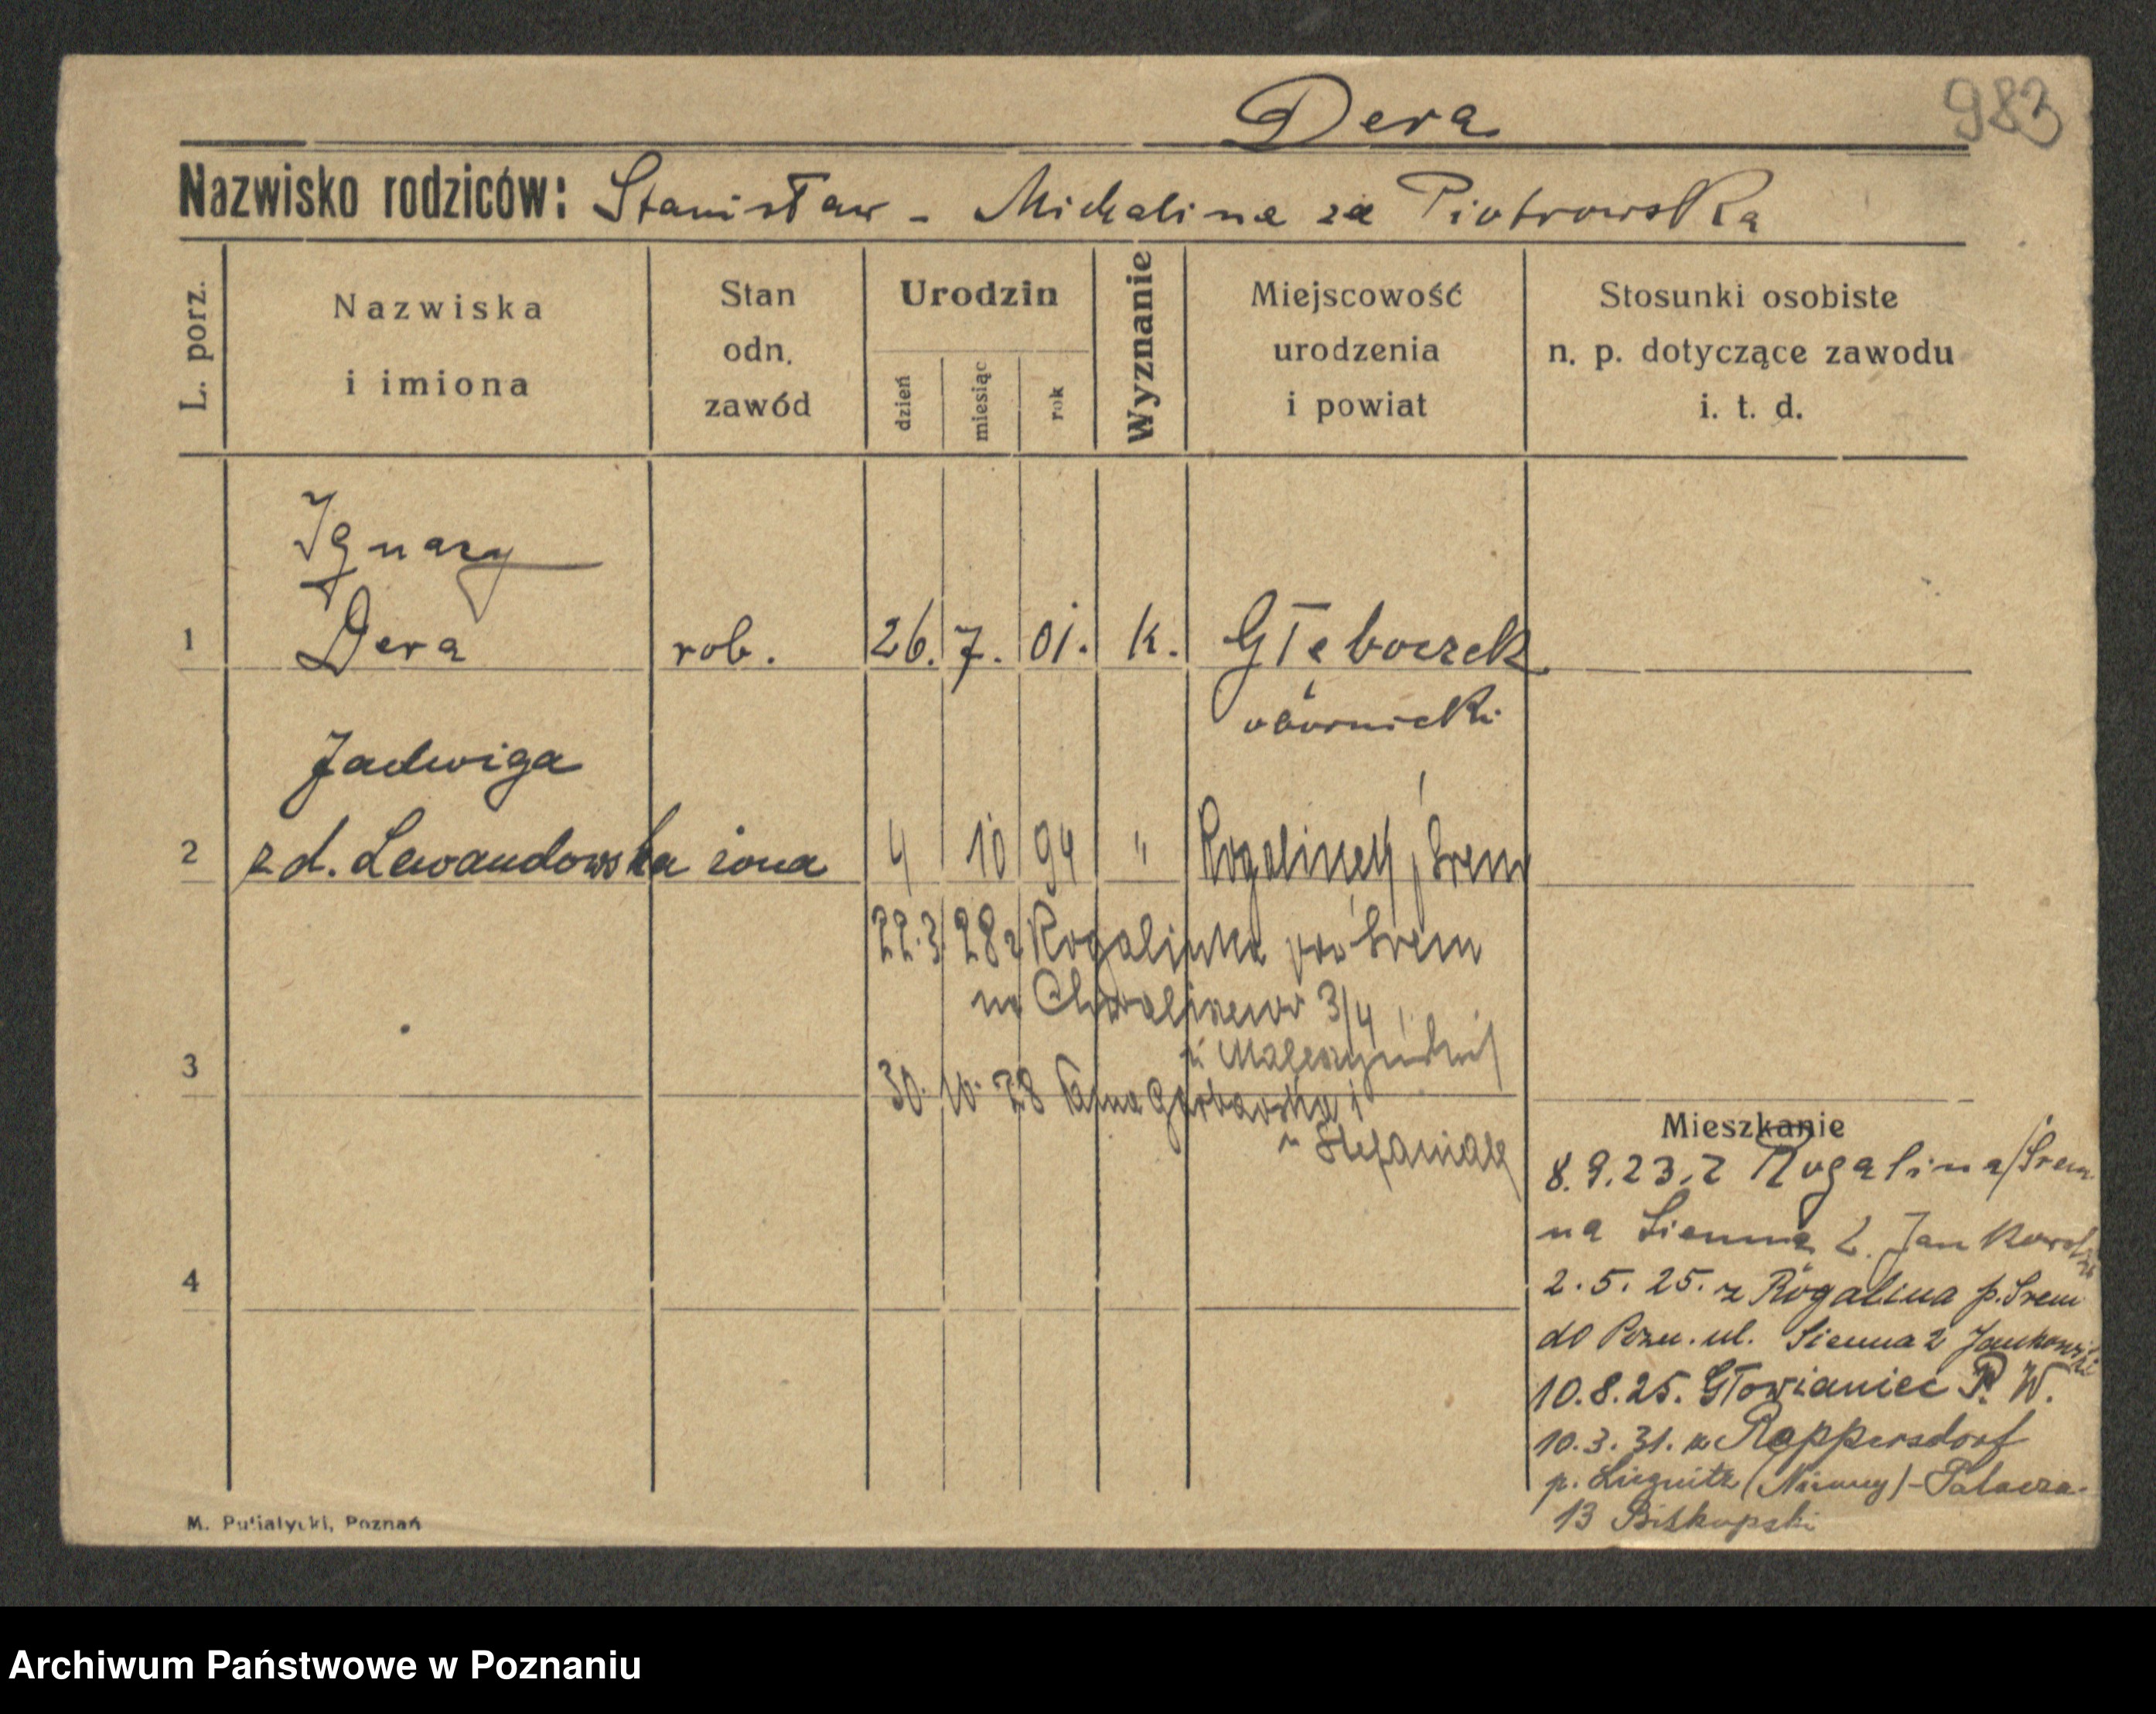 983
Dera
Nazwisko rodziców: Stanisław - Michalina za Piotrowska
L. porz.
Nazwiska i imiona
Stan odn. zawód
Urodzin
dzień
miesiąc
rok
Wyznanie
Miejscowość urodzenia i powiat
Stosunki osobiste n. p. dotyczące zawodu i. t. d.
Ignacy
1 Dera rob. 26. 7. 01. k. Głęboczek
obornicki
Jadwiga
2 z d. Lewandowska żona 4 10 94 " Rogalinek, Śrem
22.3 28 z Rogalinka Śrem
na 3/4
3
30. 10. 28
u
4
Mieszkanie
8.9.23. z Rogalina/Śrem
na Sienna 2. Jankowski
2.5.25. z Rogalina p. Śrem
do Pozn. ul. Sienna 2 Jankowski
10.8.25. Głowianiec P. W.
10.3.31. Roppersdorf
p. Liegnitz (Niemcy) - Palacza
13 Biskupski
M. Putiatycki, Poznań
Archiwum Państwowe w Poznaniu